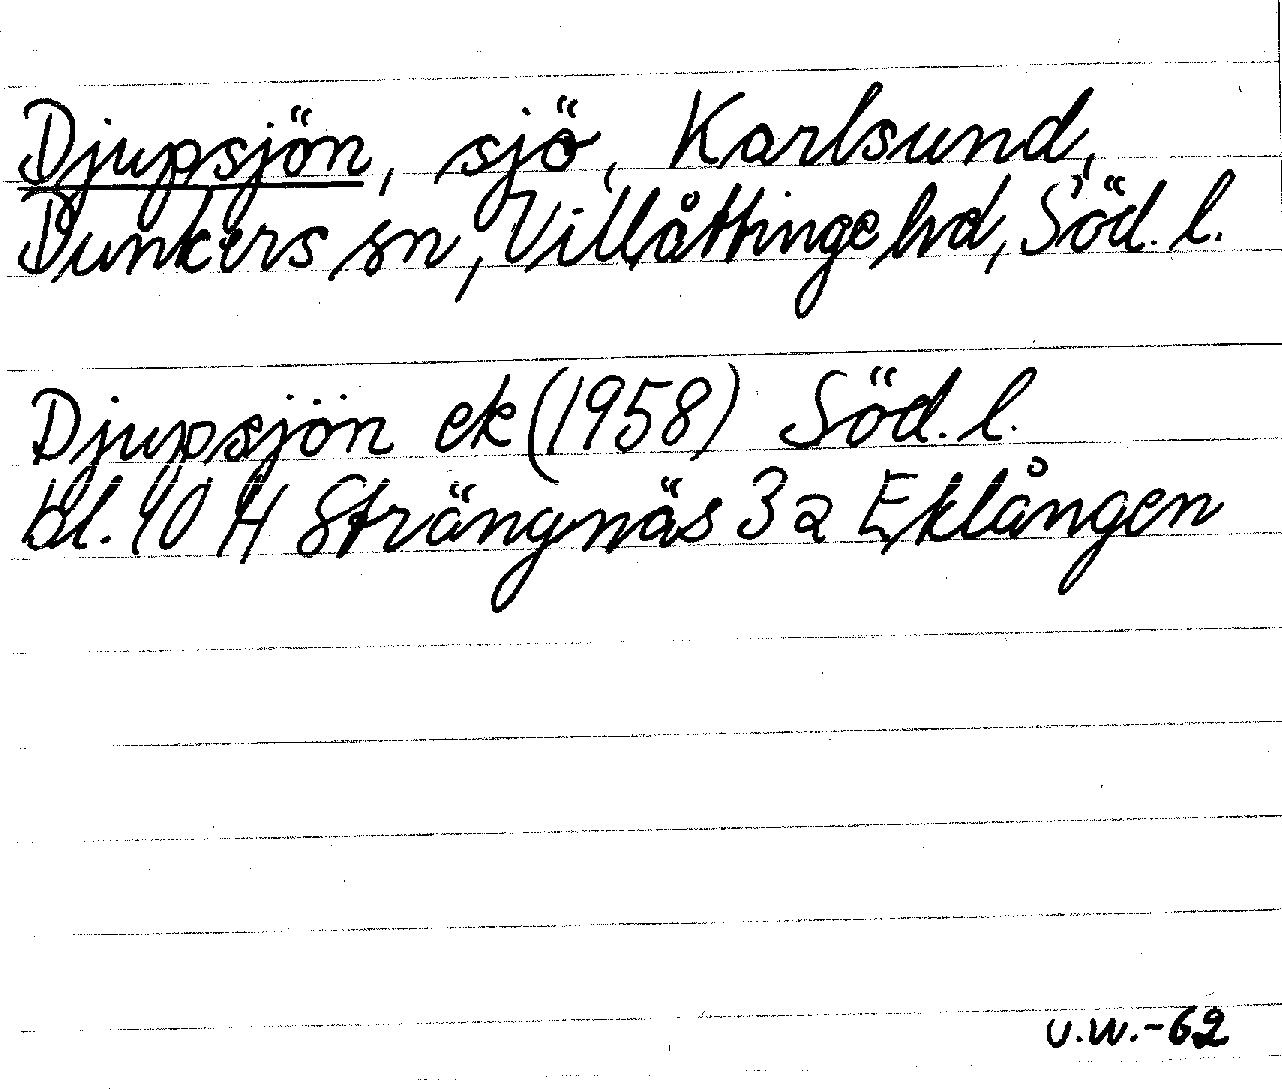 Djupsjön, sjö, Karlsund,
Dunkers sn, Villåttinge hd, Söd. l.
Djupsjön ek (1958) Söd. l.
bl. 10 H Strängnäs 3a Eklången
U.W.-62